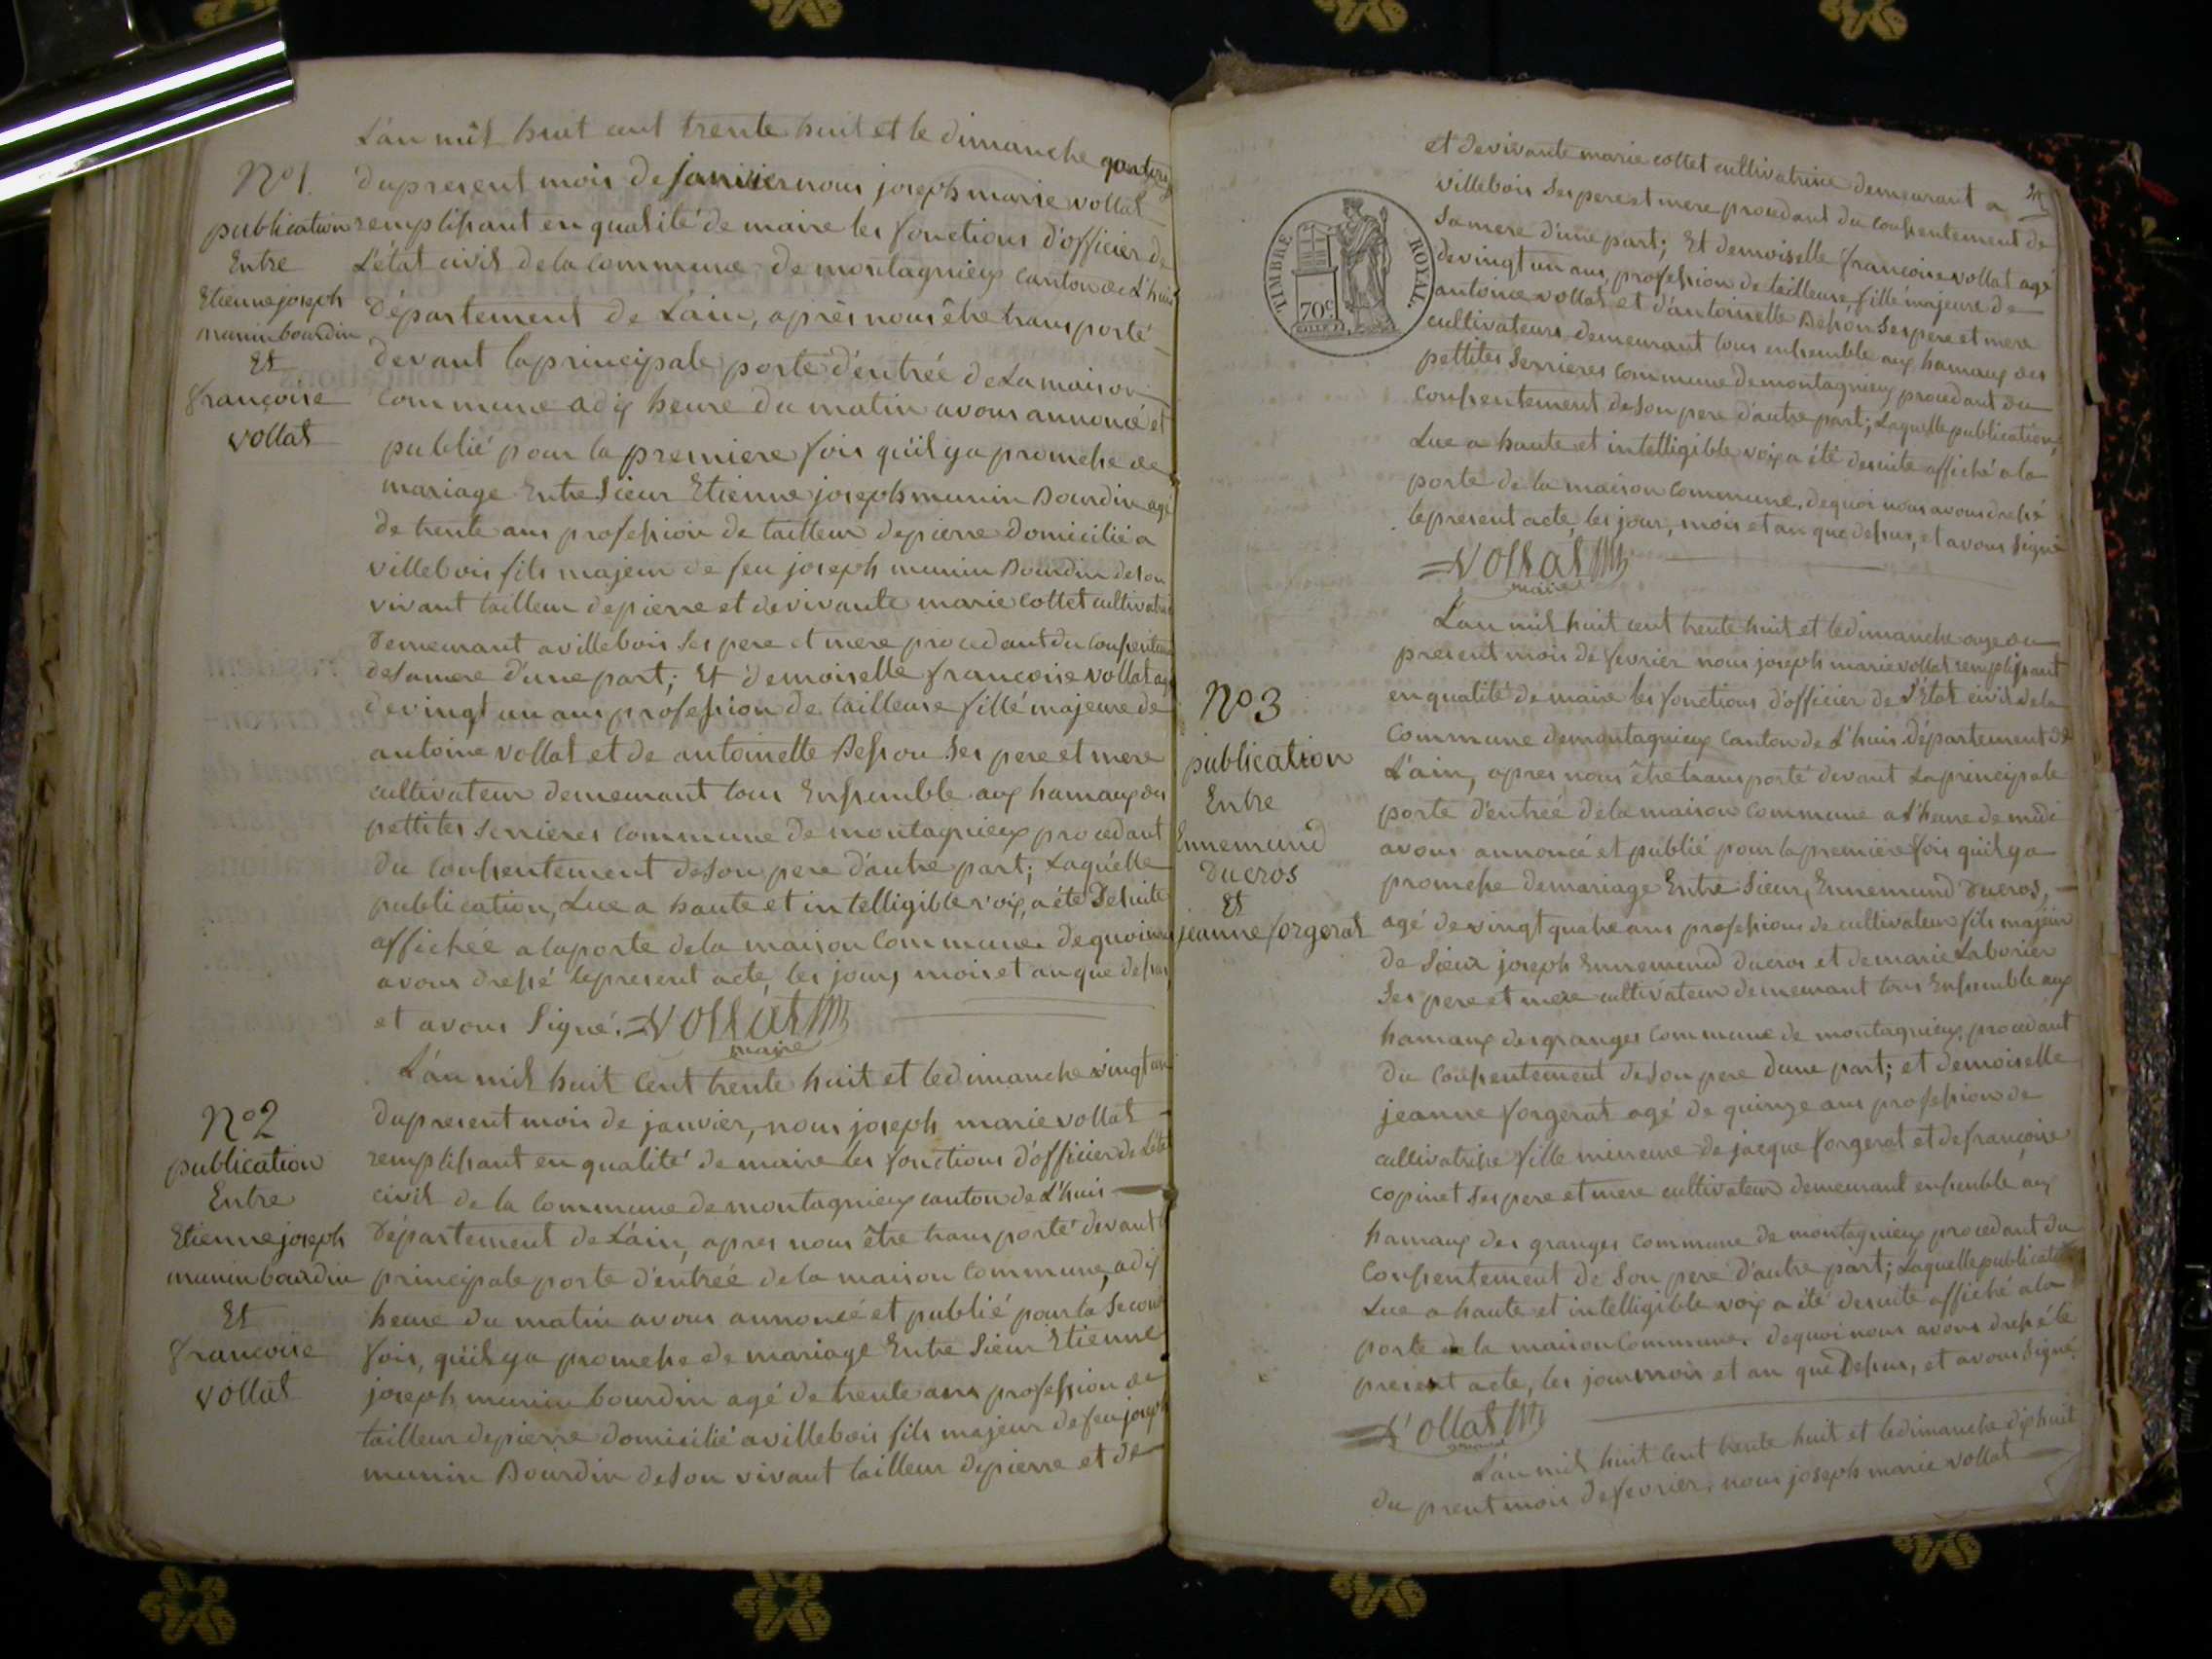 L'an mil huit cent trente huit et le dimanche quatorze
N° 1. du present mois de janvier nous joseph marie vollat
publication remplissant en qualité de maire les fonctions d'officier de
Entre L'état civil de la commune de montagnieux canton de L'huis
Etienne joseph Département de L'ain, après nous être transporté
munin bourdin devant la principale porte d'entrée de La maison
Et commune a dix heure du matin avons annoncé et
françoise publié pour la premiere fois qu'il y a promesse de
vollat mariage Entre Sieur Etienne joseph munin Bourdin agé
de trente ans profession de tailleur de pierre domicilié a
villebois fils majeur de feu joseph munin Bourdin de son
vivant tailleur de pierre et de vivante marie cottet cultivatrice
demeurant a villebois ses pere et mere procedant du consentement
de sa mere d'une part; Et demoiselle françoise vollat agé
de vingt un ans profession de tailleuse fille majeure de
antoine vollat et de antoinette Besson ses pere et mere
cultivateur demeurant tous Ensemble aux hamaux des
pettites serrieres commune de montagnieux procedant
du consentement de son pere d'autre part; Laquelle
publication, Lue a haute et intelligible voix, a été desuite
affichée a la porte de la maison commune. de quoi nous
avons dressé le present acte, les jours, mois et an que dessus
et avons signé. =Vollat
maire
L'an mil huit cent trente huit et le dimanche vingt un
N° 2 du present mois de janvier, nous joseph marie vollat
publication remplissant en qualité de maire les fonctions d'officier de L'état
Entre civil de la commune de montagnieux canton de L'huis
Etienne joseph Département de L'ain, apres nous être transporté devant la
munin bourdin principale porte d'entrée de la maison commune, a dix
Et heure du matin avons annoncé et publié pour la seconde
françoise fois, qu'il y a promesse de mariage Entre Sieur Etienne
vollat joseph munin bourdin agé de trente ans profession de
tailleur de pierre domicilié a villebois fils majeur de feu joseph
munin Bourdin de son vivant tailleur de pierre et de
et de vivante marie cottet cultivatrice demeurant a
villebois ses pere et mere procedant du consentement de
sa mere d'une part; Et demoiselle françoise vollat agé
de vingt un ans, profession de tailleuse, fille majeure de
antoine vollat et d'antoinette Besson ses pere et mere
cultivateurs demeurant tous ensemble aux hamaux des
pettites Serrieres commune de montagnieux procedant du
consentement de son pere d'autre part; Laquelle publication,
Lue a haute et intelligible voix a été desuite affiché a la
porte de la maison commune. de quoi nous avons dressé
le present acte, les jour, mois et an que dessus, et avons signé
=Vollat
maire
TIMBRE ROYAL.
70c
L'an mil huit cent trente huit et le dimanche onze du
present mois de fevrier nous joseph marie vollat remplissant
N° 3 en qualité de maire les fonctions d'officier de L'état civil de la
commune de montagnieux canton de L'huis département de
publication L'ain, apres nous être transporté devant La principale
Entre porte d'entrée de la maison commune a L'heure de midi
Ennemund avons annoncé et publié pour la première fois qu'il y a
ducros promesse de mariage Entre Sieur, Ennemund ducros,
Et agé de vingt quatre ans profession de cultivateur fils majeur
jeanne forgerat de Sieur joseph Ennemund ducros et de marie Laborier
ses pere et mere cultivateur demeurant tous Ensemble aux
hamaux des granges commune de montagnieux, procedant
du consentement de son pere d'une part; et demoiselle
jeanne forgerat agé de quinze ans profession de
cultivatrisse fille mineure de jacque forgerat et de françoise
copinet ses pere et mere cultivateur demeurant ensemble aux
hamaux des granges commune de montagnieux procedant du
consentement de son pere d'autre part; Laquelle publication
Lue a haute et intelligible voix a été desuite affiché a la
porte de la maison commune. de quoi nous avons dressé le
present acte, les jour mois et an que Dessus, et avons signé.
=Vollat
L'an mil huit cent trente huit et le dimanche dix huit
du prent mois de fevrier, nous joseph marie vollat